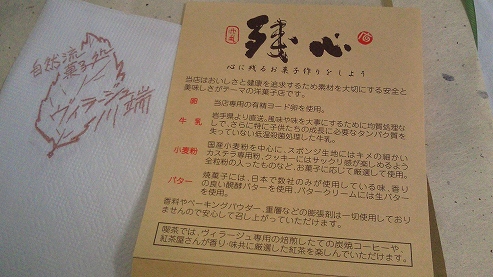 自然流
菓子処
ヴィラージュ
川端
残心
心に残るお菓子作りをしよう
当店はおいしさと健康を追求するため素材を大切にする安全と
美味しさがテーマの洋菓子店です。
卵 当店専用の有精ヨード卵を使用。
牛乳 岩手県より直送。風味や味を大事にするために均質処理な
しで、さらに特に子供たちの成長に必要なタンパク質を
失っていない低温殺菌処理した牛乳。
小麦粉 国産小麦粉を中心に、スポンジ生地にはキメの細かい
カステラ専用粉、クッキーにはサックリ感が楽しめるよう
全粒粉の入ったものなど、お菓子に応じて厳選して使用。
バター 焼菓子には、日本で数社のみが使用している味、香り
の良い醗酵バターを使用、バタークリームには生バタ
ーを使用。
香料やベーキングパウダー、重層などの膨張剤は一切使用しており
ませんので安心して召し上がっていただけます。
喫茶では、ヴィラージュ専用の焙煎したての炭焼コーヒーや、
紅茶屋さんが香り・味共に厳選した紅茶を楽しんでいただけます。